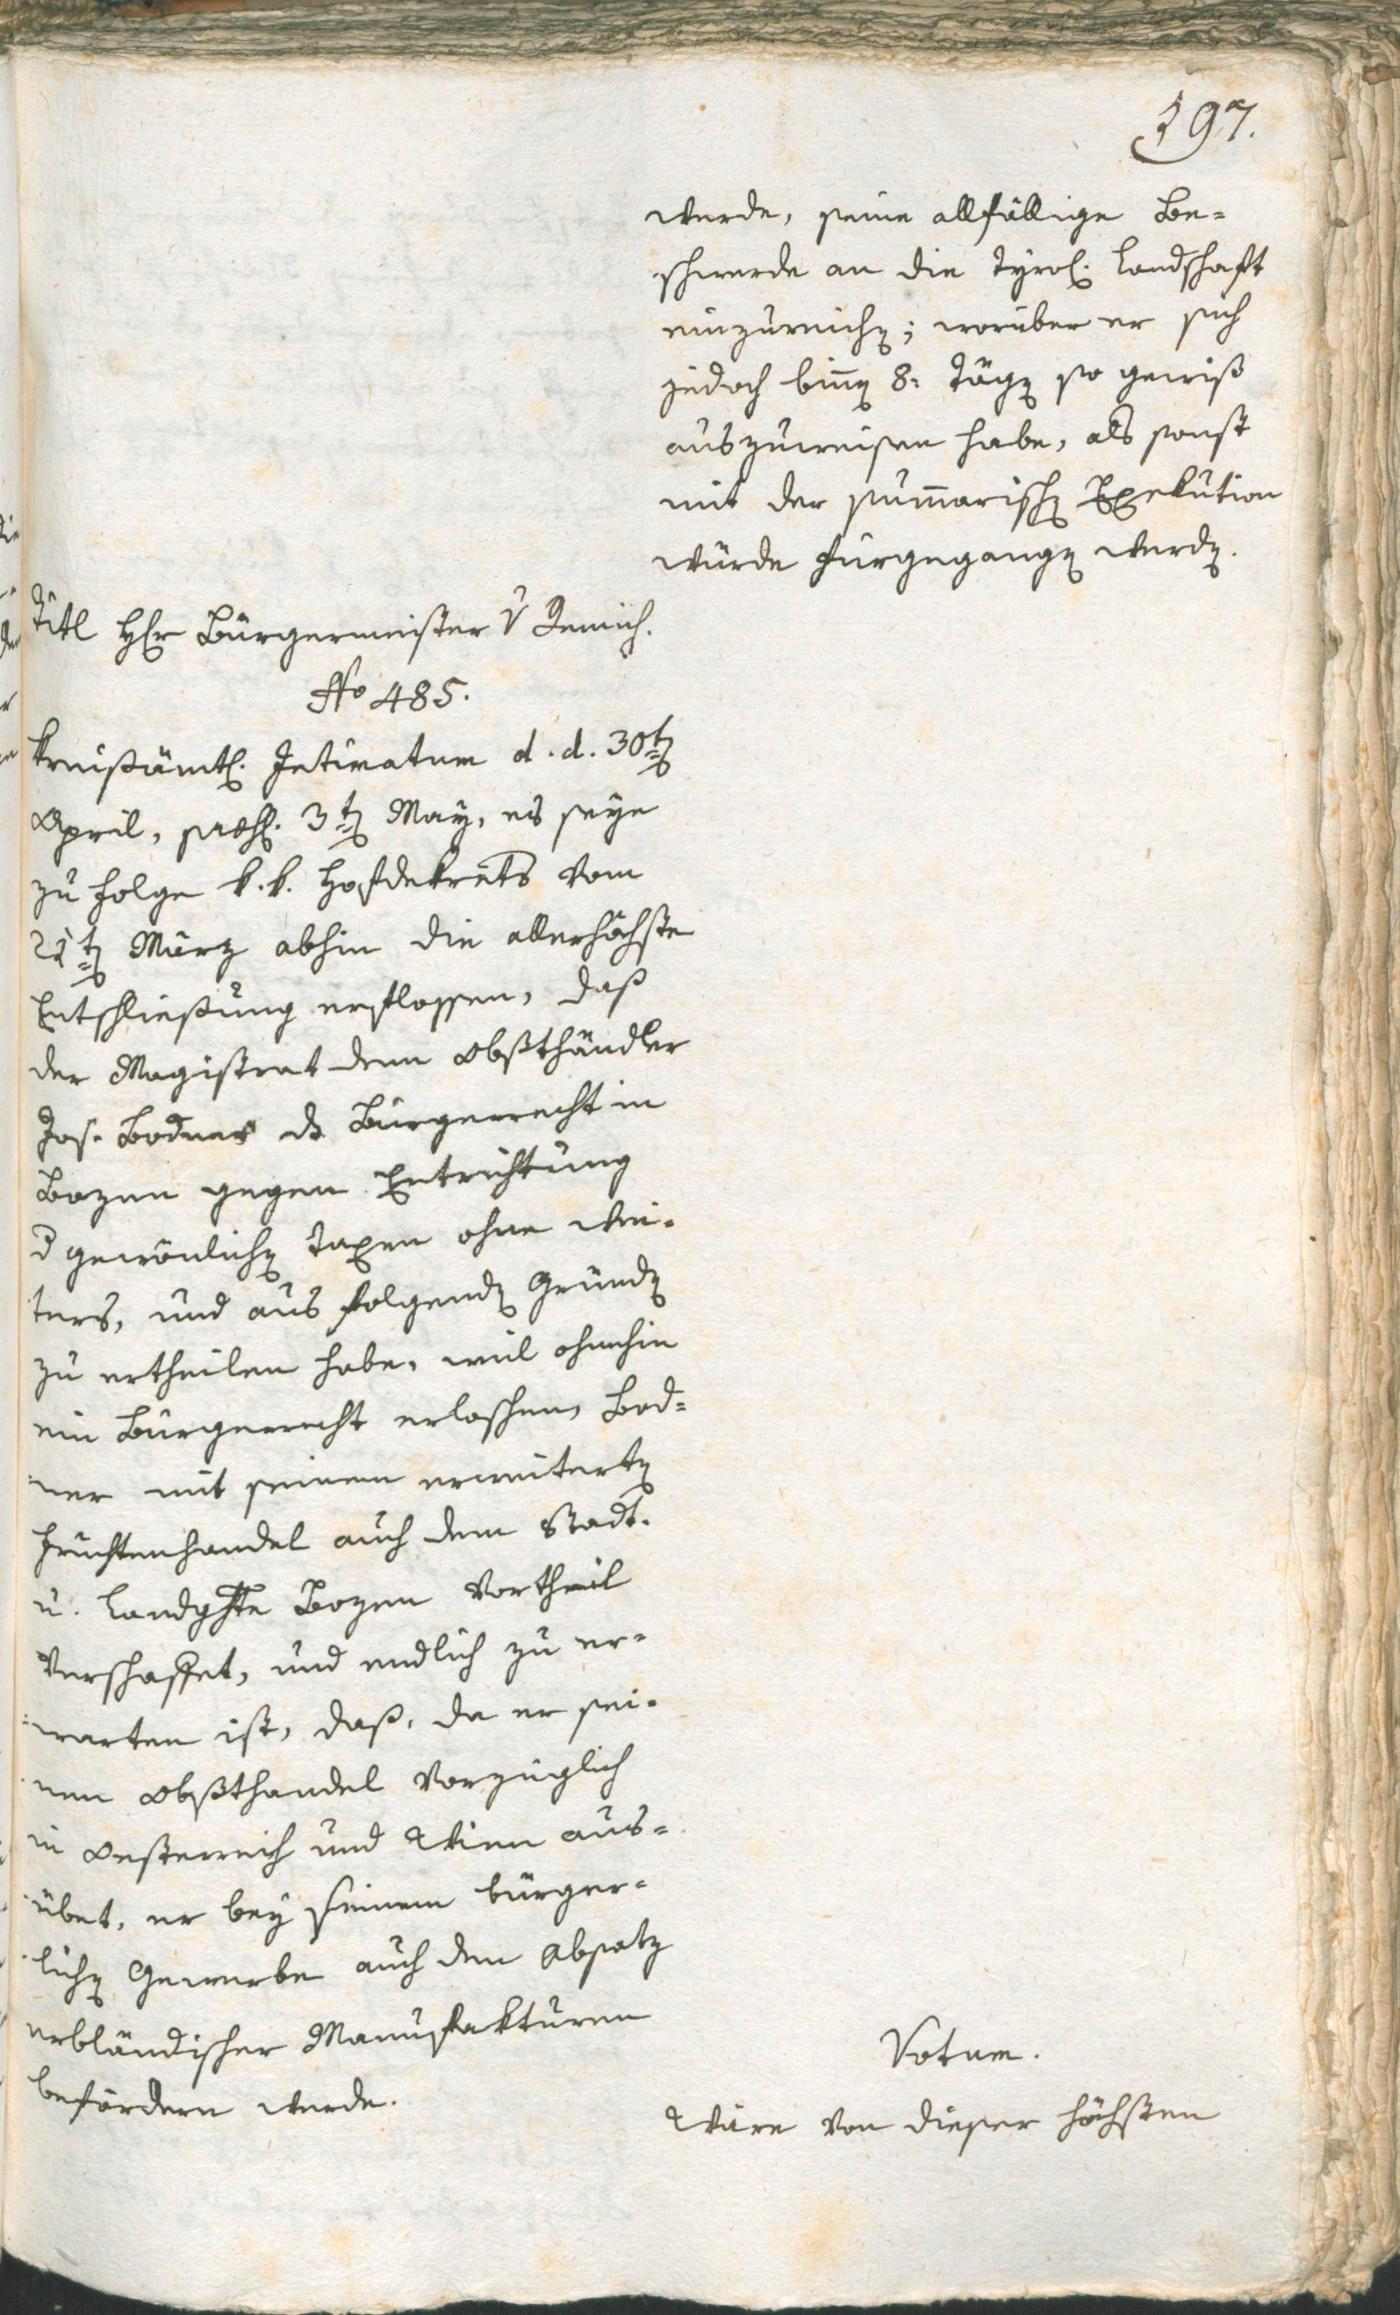 197.
werde, seine allfällige Be-
schwerde an die Tyrol. Landschaft
einzureichen; worüber er sich
jedoch binnen 8: Tägen so gewiß
auszuweisen habe, als sonst
mit der summarischen Exekution
würde fürgegangen werden.
Titl Herr Bürgermeister v
No 485.
Kreißämtl. Intimatum d. d. 30ten
April, 3ten May, es seye
zu Folge k. k. Hofdekrets vom
21ten März abhin die allerhöchste
Entschließung erflossen, daß
der Magistrat dem Obsthändler
Jos. Bodner ds Bürgerrecht in
Bozen gegen Entrichtung
d gewönlichen Taxen ohne wei-
ters, und aus folgenden Gründen
zu ertheilen habe, weil ohnehin
ein Bürgerrecht erloschen, Bod-
ner mit seinem erweiterten
Früchtenhandel auch dem Stadt-
u. Landgshte Bozen Vortheil
verschaffet, und endlich zu er-
warten ist, daß, da er sei-
nen Obsthandel vorzüglich
in Oesterreich und Wien aus-
übet, er bey seinem bürger-
lichen Gewerbe auch den Absatz
erbländischer Manufakturen
befördern werde.
Votum.
Wäre von dieser höchsten